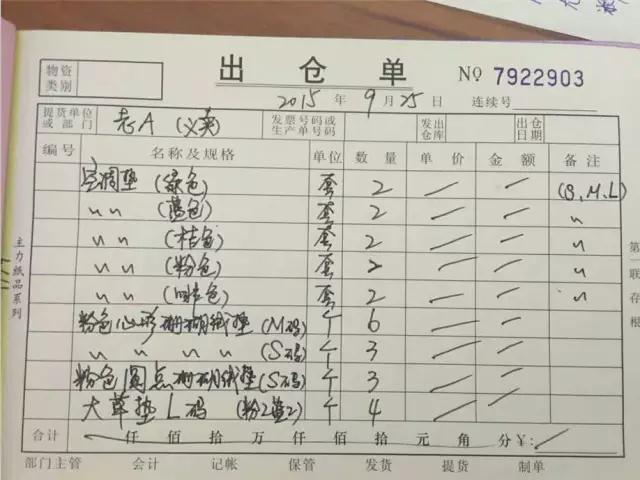 出仓单 NO 7922903
物资类别
2015年 9月25日 连续号
提货单位或部门 老A (义卖) 发票号码或生产单号码 发出仓库 出仓日期
编号 名称及规格 单位 数量 单价 金额 备注
空调垫 (绿色) 套 2 / / (S,M,L)
〃 〃 (蓝色) 套 2 / / 〃
〃 〃 (桔色) 套 2 / / 〃
〃 〃 (粉色) 套 2 / / 〃
〃 〃 (色) 套 2 / / 〃
粉色心形珊瑚绒垫 (M码) 个 6 / /
〃 〃 〃 〃 (S码) 个 3 / /
粉色圆点珊瑚绒垫 (S码) 个 3 / /
大草垫 L码 (粉2蓝2) 个 4 / /
合计 仟 佰 拾 万 仟 佰 拾 元 角 分 ¥: /
部门主管 会计 记帐 保管 发货 提货 制单
主力纸品系列
第一联 存根